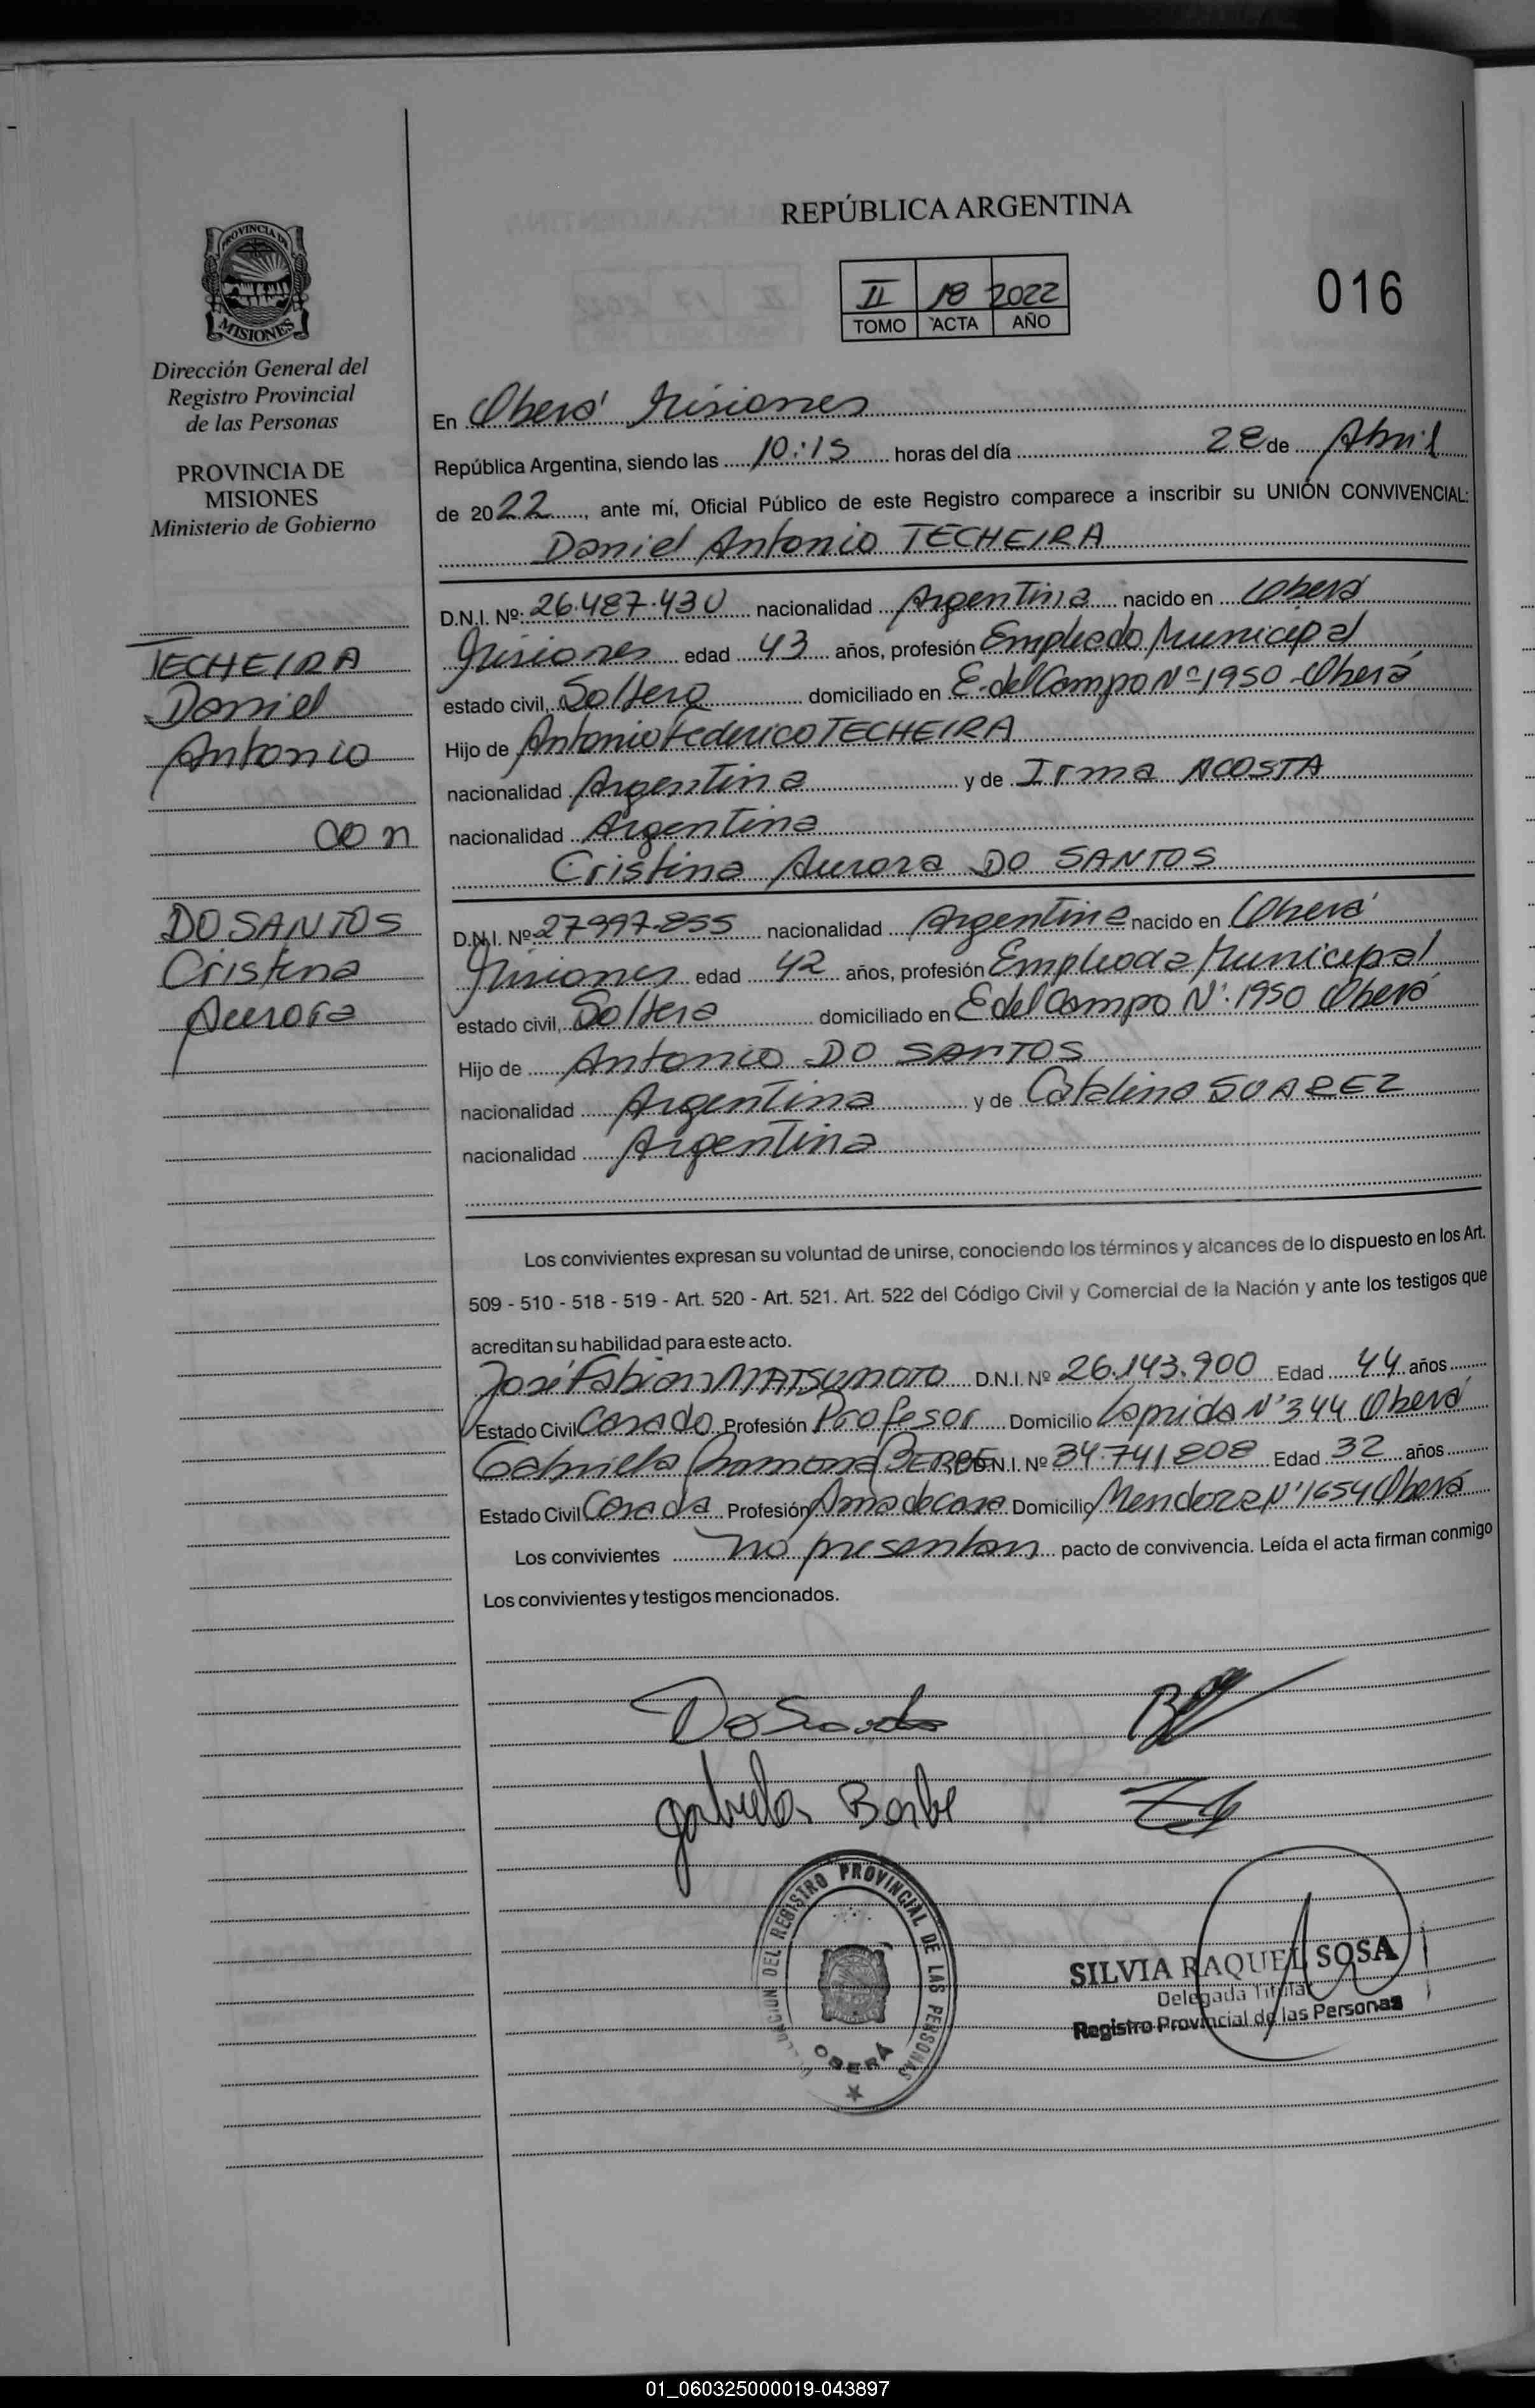 REPÚBLICA ARGENTINA
II 18 2022
TOMO ACTA AÑO
016
PROVINCIA DE
MISIONES
Dirección General del
Registro Provincial
de las Personas
PROVINCIA DE
MISIONES
Ministerio de Gobierno
TECHEIRA
Daniel
Antonio
con
DO SANTOS
Cristina
Aurora
En Oberá Misiones
República Argentina, siendo las 10:15 horas del día 28 de Abril
de 2022, ante mí, Oficial Público de este Registro comparece a inscribir su UNIÓN CONVIVENCIAL:
Daniel Antonio TECHEIRA
D.N.I. Nº: 26.487.430 nacionalidad Argentina nacido en Oberá
Misiones edad 43 años, profesión Empleado Municipal
estado civil, Soltero domiciliado en E. del Campo Nº 1950 - Oberá
Hijo de Antonio Federico TECHEIRA
nacionalidad Argentina y de Irma ACOSTA
nacionalidad Argentina
Cristina Aurora DO SANTOS
D.N.I. Nº: 27997.855 nacionalidad Argentina nacido en Oberá
Misiones edad 42 años, profesión Empleada Municipal
estado civil, Soltera domiciliado en E del Campo Nº. 1950 Oberá
Hijo de Antonio DO SANTOS
nacionalidad Argentina y de Catalina SUAREZ
nacionalidad Argentina
Los convivientes expresan su voluntad de unirse, conociendo los términos y alcances de lo dispuesto en los Art.
509 - 510 - 518 - 519 - Art. 520 - Art. 521. Art. 522 del Código Civil y Comercial de la Nación y ante los testigos que
acreditan su habilidad para este acto.
José Fabian MATSUMOTO D.N.I. Nº 26.143.900 Edad 44 años
Estado Civil Casado Profesión Profesor Domicilio Laprida Nº 344 Oberá
Gabriela Ramona D.N.I. Nº 34.741808 Edad 32 años
Estado Civil Casada Profesión Ama de casa Domicilio Mendoza Nº 1654 Oberá
Los convivientes no presentan pacto de convivencia. Leída el acta firman conmigo
Los convivientes y testigos mencionados.
DoSantos
gabriela Barbe
REGISTRO PROVINCIAL DE LAS PERSONAS
OBERÁ
SILVIA RAQUEL SOSA
Delegada Titular
Registro Provincial de las Personas
01_060325000019-043897